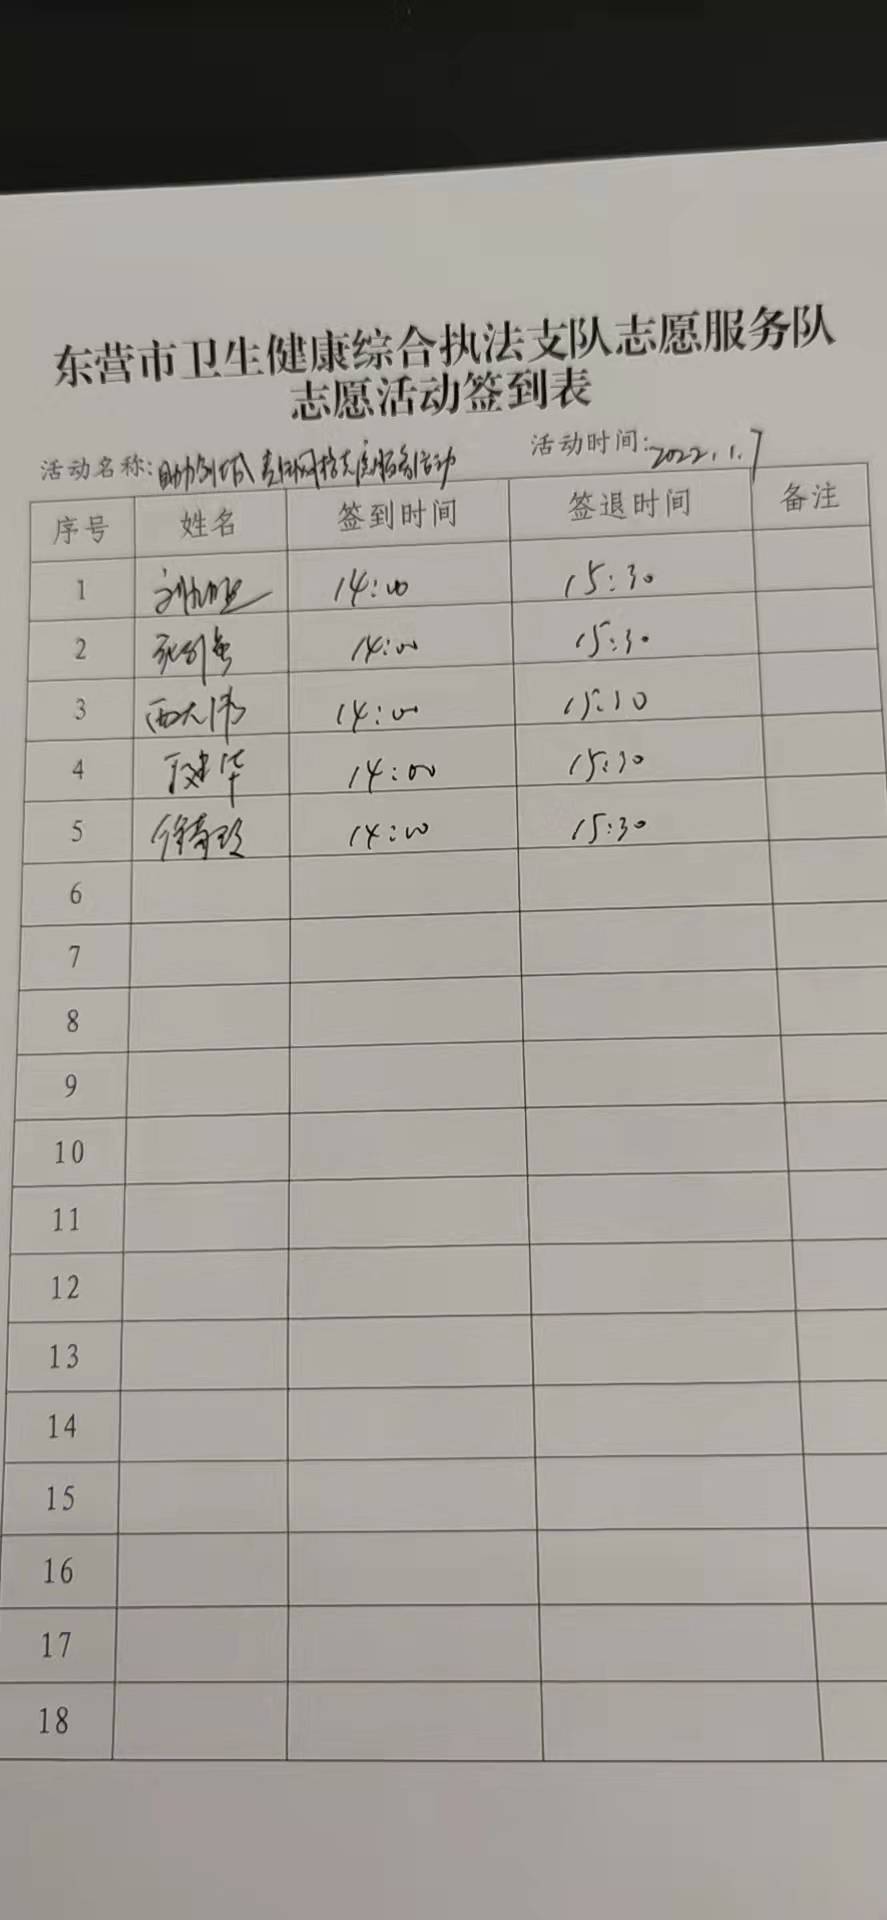 东营市卫生健康综合执法支队志愿服务队
志愿活动签到表
活动名称：助力创城 志愿服务活动 活动时间：2022.1.7
序号 姓名 签到时间 签退时间 备注
1 14:00 15:30
2 14:00 15:30
3 西大伟 14:00 15:30
4 14:00 15:30
5 14:00 15:30
6
7
8
9
10
11
12
13
14
15
16
17
18